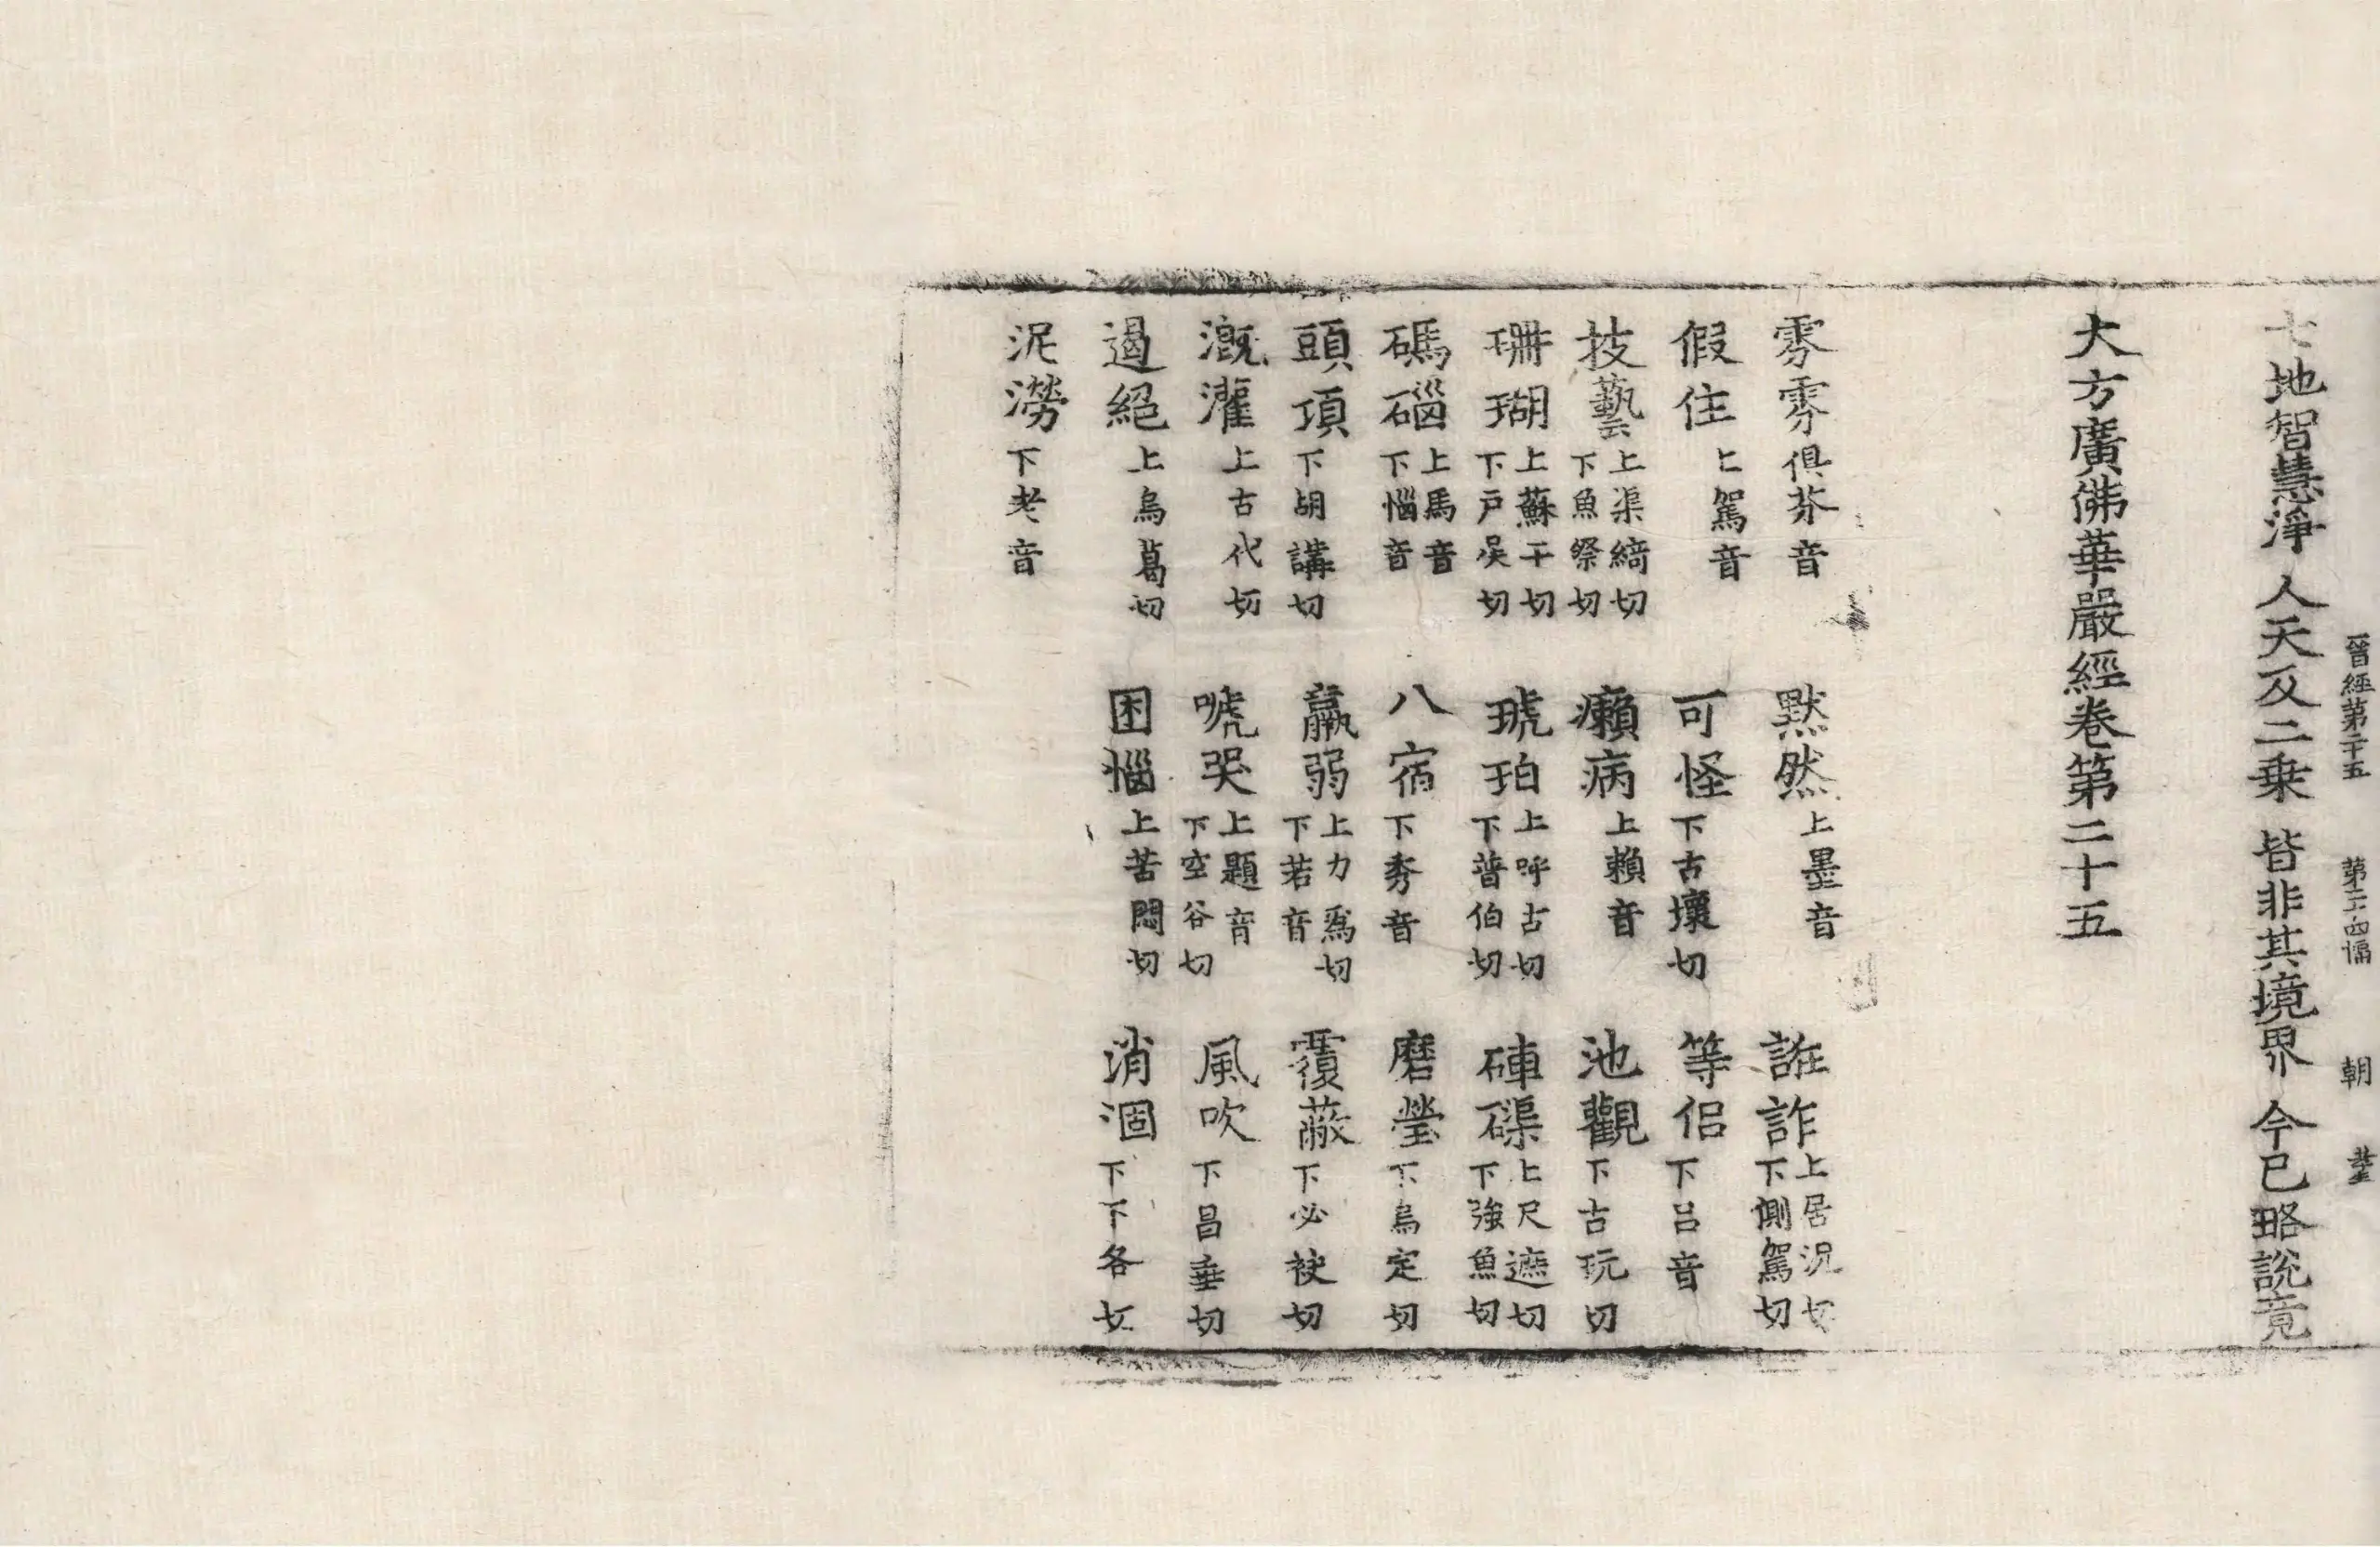 晉經第二十五　第二十四幅　朝　
七地智慧淨　人天及二乗　皆非其境界　今已略說竟
大方廣佛華嚴經卷第二十五
雰雰俱芬音　黙然上墨音　誑詐上居況切下側駕切
假住上駕音　可怪下古壞切　等侶下吕音
技藝上渠綺切下魚祭切　癩病上賴音　池觀下古玩切
珊瑚上蘇干切下戸吴切　琥珀上呼古切下普伯切　硨磲上尺遮切下強魚切
碼碯上馬音下惱音　八宿下秀音　磨瑩下烏定切
頭項下胡講切　羸弱上力爲切下若音　覆蔽下必袂切
漑灌上古代切　嗁哭上題音下空谷切　風吹下昌垂切
遏絕上烏葛切　困惱上苦悶切　消涸下下各切
泥澇下老音